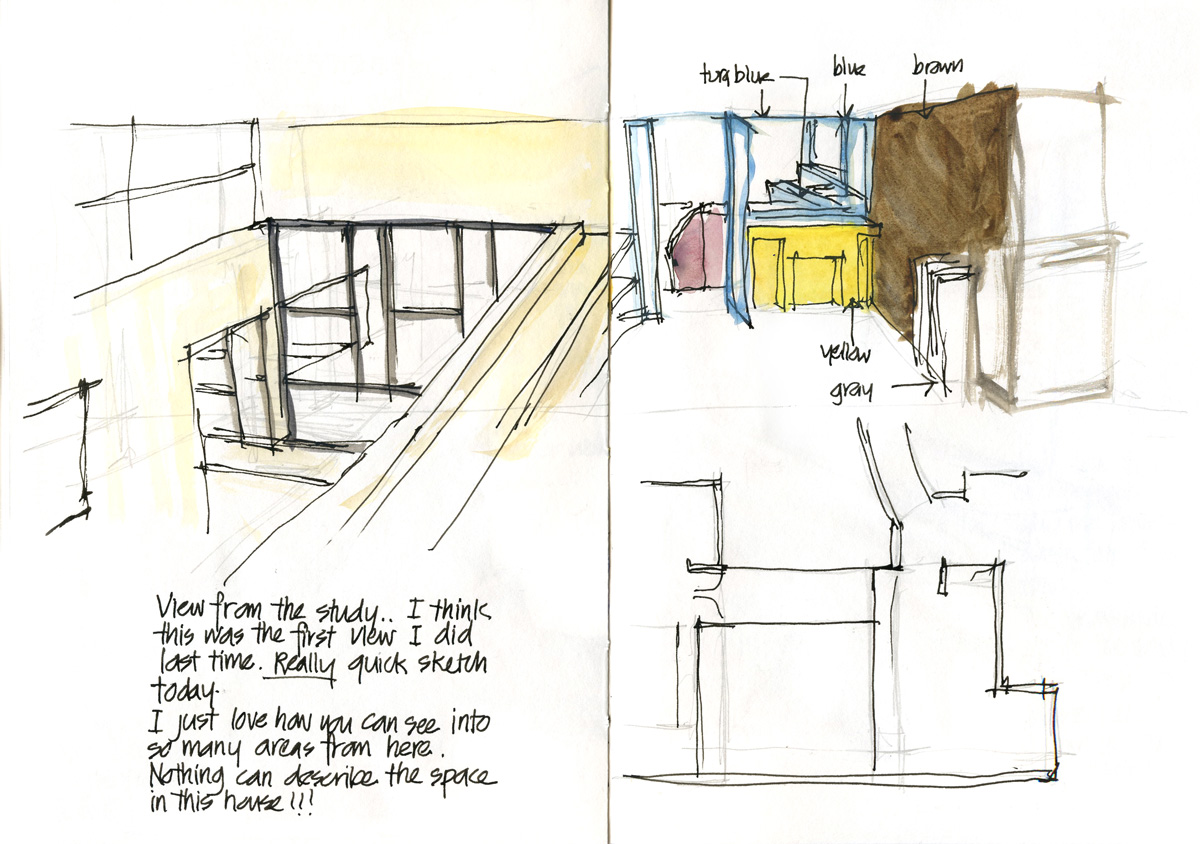 turq blue
blue
brown
yellow
gray
View from the study.. I think
this was the first view I did
last time. Really quick sketch
today.
I just love how you can see into
so many areas from here.
Nothing can describe the space
in this house!!!